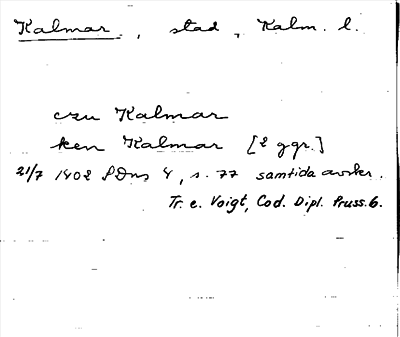 Kalmar, stad, Kalm. l.
czu Kalmar
ken Kalmar [2 ggr.]
21/7 1402 SDns 4, s. 77 samtida avskr.
Tr. e. Voigt, Cod. Dipl. Pruss. 6.